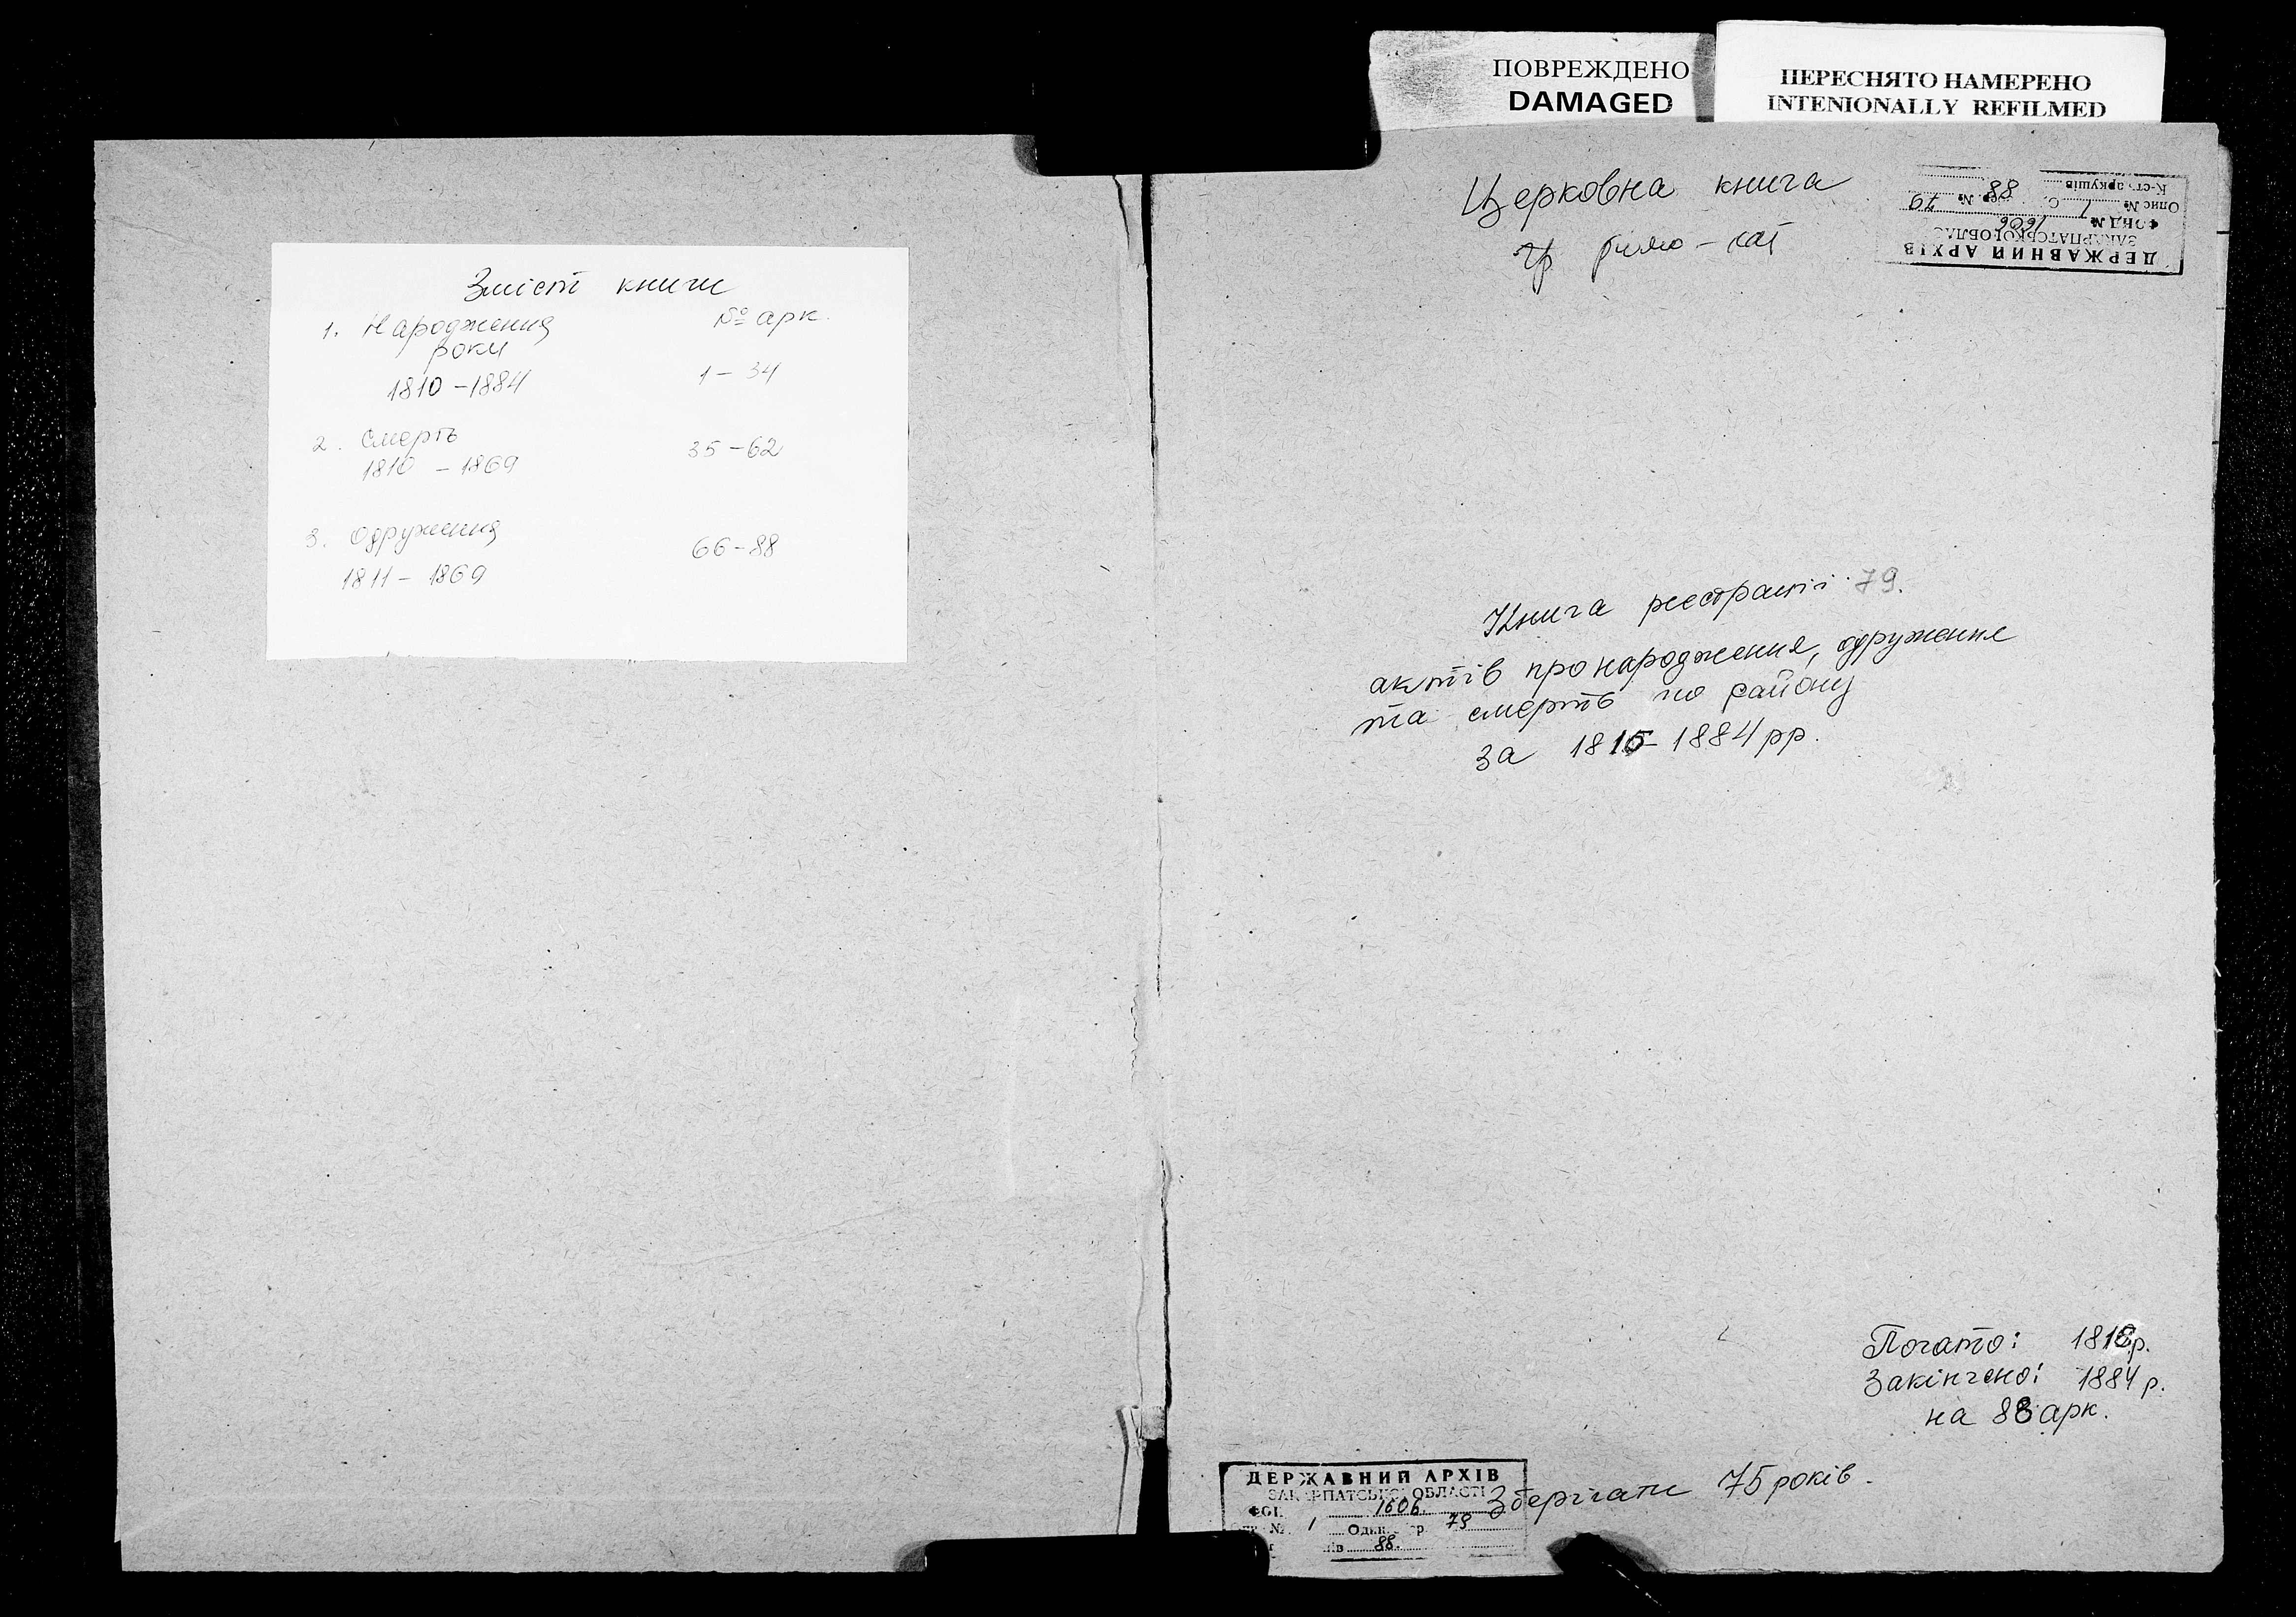 ПОВРЕЖДЕНО
DAMAGED
ПЕРЕСНЯТО НАМЕРЕНО
INTENIONALLY REFILMED
Зміст книги
№ арк.
1. Народження
роки
1810-1884 1-34
2. Смерть
1810-1869 35-62
3. Одруження
1811-1869 66-88
Церковна книга
римо-кат
ДЕРЖАВНИЙ АРХІВ
ЗАКАРПАТСЬКОЇ ОБЛАС
ФОНД № 1606
Опис № 1 № 79
К-сть аркушів 88
Книга реєстрації 79.
актів про народження, одруження
та смерть по району
за 1810-1884 рр.
Почато: 1810 р.
Закінчено: 1884 р.
на 88 арк.
ДЕРЖАВНИЙ АРХІВ
ЗАКАРПАТСЬКОЇ ОБЛАСТІ
ФОН 1606.
№ 1 Од. 79
88.
Зберігати 75 років.